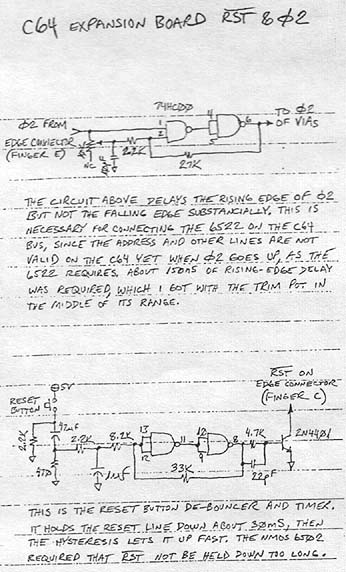 C64 EXPANSION BOARD RST & Φ2
74HC00
Φ2 FROM
EDGE CONNECTOR
(FINGER E)
1
2
4
5
6
TO Φ2
OF VIAs
NC
2.2K
27K
THE CIRCUIT ABOVE DELAYS THE RISING EDGE OF Φ2
BUT NOT THE FALLING EDGE SUBSTANCIALLY. THIS IS
NECESSARY FOR CONNECTING THE 6522 ON THE C64
BUS, SINCE THE ADDRESS AND OTHER LINES ARE NOT
VALID ON THE C64 YET WHEN Φ2 GOES UP, AS THE
6522 REQUIRES. ABOUT 150nS OF RISING-EDGE DELAY
WAS REQUIRED, WHICH I GOT WITH THE TRIM POT IN
THE MIDDLE OF ITS RANGE.
RST ON
EDGE CONNECTOR
(FINGER C)
5V
RESET
BUTTON
2.2K
47Ω
2.2K
8.2K
1μF
13
12
11
10
9
8
33K
4.7K
22pF
2N4401
THIS IS THE RESET BUTTON DE-BOUNCER AND TIMER.
IT HOLDS THE RESET LINE DOWN ABOUT 30mS, THEN
THE HYSTERESIS LETS IT UP FAST. THE NMOS 6502
REQUIRED THAT RST NOT BE HELD DOWN TOO LONG.